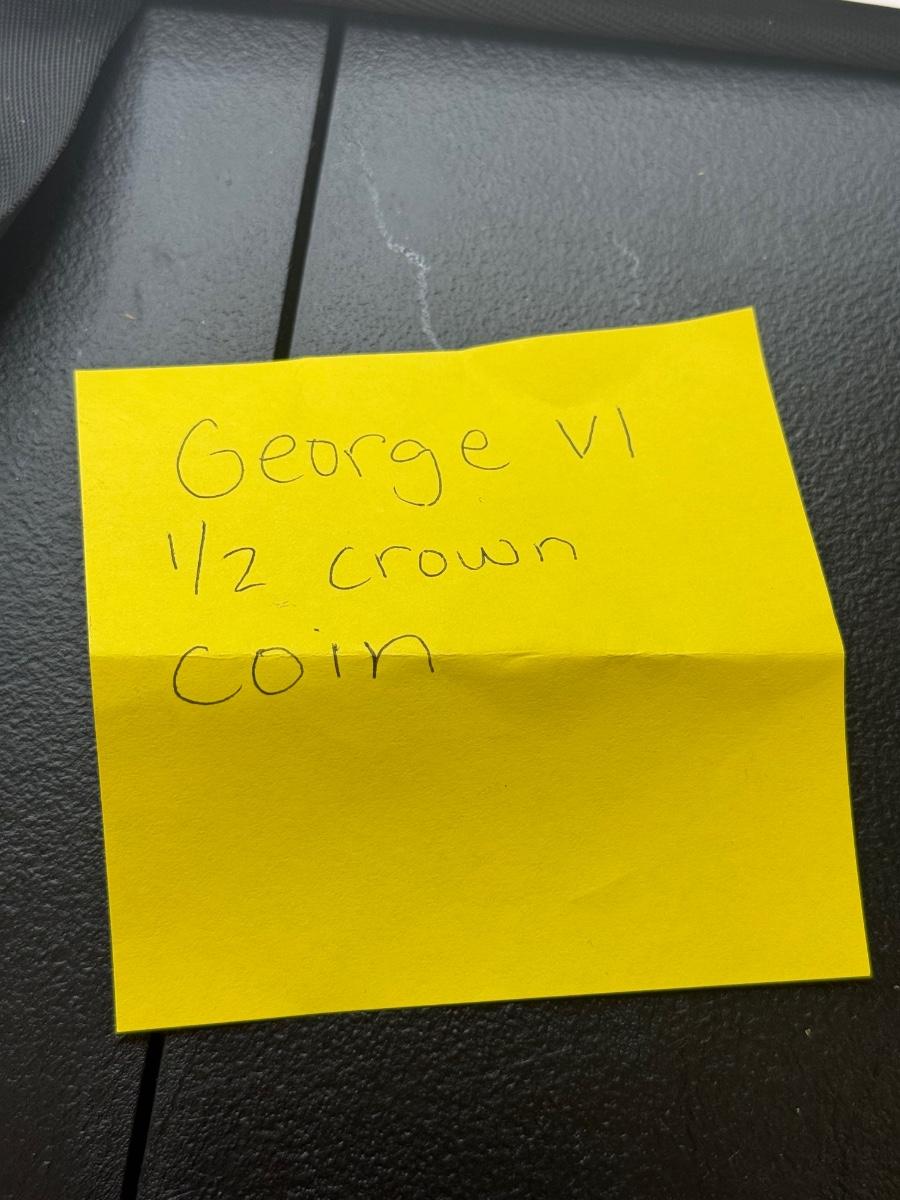 George VI
1/2 crown
coin